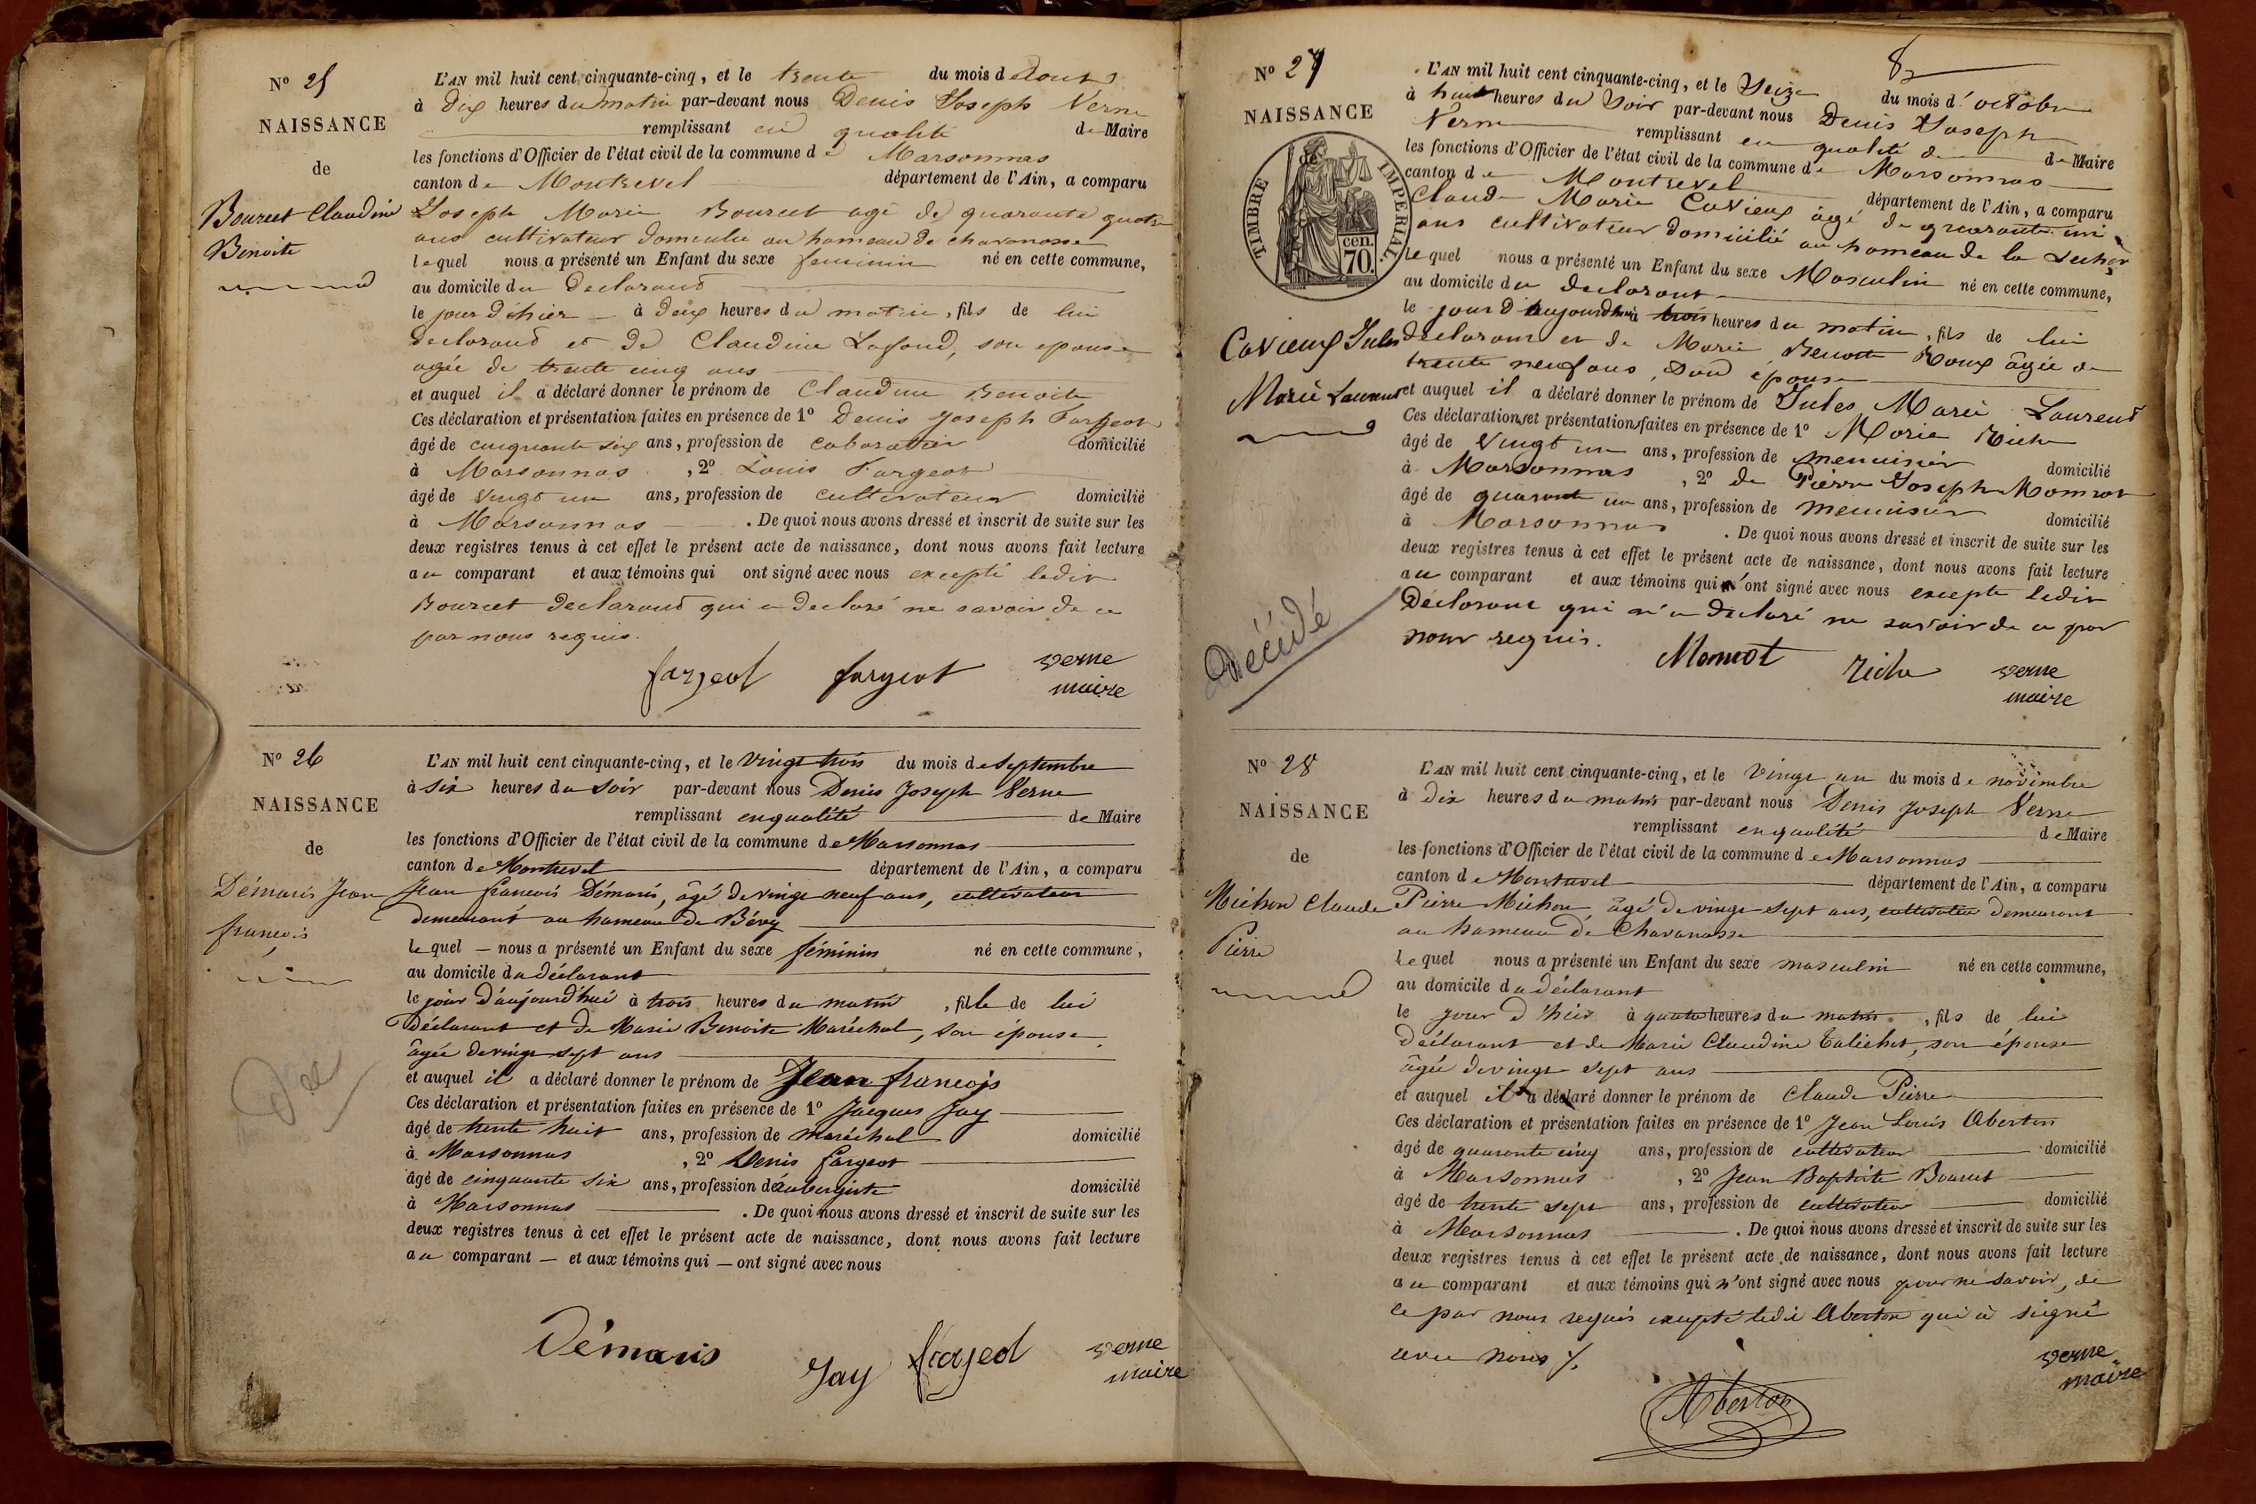 Nº 25
NAISSANCE
de
Bourcet Claudine
Benoite
L'AN mil huit cent cinquante-cinq, et le trente du mois d'aout
à dix heures du matin par-devant nous Denis Joseph Verne
remplissant en qualité de Maire
les fonctions d'Officier de l'état civil de la commune de Marsonnas
canton de Montrevel département de l'Ain, a comparu
Joseph Marie Bourcet agé de quarante quatre
ans cultivateur domicilié au hameau de chavanosse
lequel nous a présenté un Enfant du sexe feminin né en cette commune,
au domicile du declarant
le jour d'hier à deux heures du matin, fils de lui
declarant et de Claudine Lafond, son epouse
agée de trente cinq ans
et auquel il a déclaré donner le prénom de Claudine Benoite
Ces déclaration et présentation faites en présence de 1º Denis Joseph Fargeot
âgé de cinquante six ans, profession de cabaretier domicilié
à Marsonnas, 2º Louis Fargeot
âgé de vingt un ans, profession de cultivateur domicilié
à Marsonnas. De quoi nous avons dressé et inscrit de suite sur les
deux registres tenus à cet effet le présent acte de naissance, dont nous avons fait lecture
au comparant et aux témoins qui ont signé avec nous excepté ledit
Bourcet declarant qui a declaré ne savoir de ce
par nous requis.
fargeot fargeot verne
maire
Nº 26
NAISSANCE
de
Démaris Jean
francois
L'AN mil huit cent cinquante-cinq, et le vingt trois du mois de septembre
à six heures du soir par-devant nous Denis Joseph Verne
remplissant en qualité de Maire
les fonctions d'Officier de l'état civil de la commune de Marsonnas
canton de Montrevel département de l'Ain, a comparu
Jean francois Démaris, âgé de vingt neuf ans, cultivateur
demeurant au hameau de Bévy
lequel nous a présenté un Enfant du sexe féminin né en cette commune,
au domicile du déclarant
le jour d'aujourd'hui à trois heures du matin, fils de lui
Déclarant et de Marie Benoite Maréchal, son épouse
âgée de vingt sept ans
et auquel il a déclaré donner le prénom de Jean francois
Ces déclaration et présentation faites en présence de 1º Jacques Jay
âgé de trente huit ans, profession de maréchal domicilié
à Marsonnas, 2º Denis fargeot
âgé de cinquante six ans, profession de aubergiste domicilié
à Marsonnas. De quoi nous avons dressé et inscrit de suite sur les
deux registres tenus à cet effet le présent acte de naissance, dont nous avons fait lecture
au comparant et aux témoins qui ont signé avec nous
Démaris Jay fargeot verne
maire
8
Nº 27
NAISSANCE
de
TIMBRE IMPERIAL
70 cen.
Cavieux Jules
Marie Laurent
Décédé
L'AN mil huit cent cinquante-cinq, et le seize du mois d'octobre
à huit heures du soir par-devant nous Denis Joseph
Verne remplissant en qualité de de Maire
les fonctions d'Officier de l'état civil de la commune de Marsonnas
canton de Montrevel département de l'Ain, a comparu
Claude Marie Cavieux âgé de quarante un
ans cultivateur domicilié au hameau de la
lequel nous a présenté un Enfant du sexe Masculin né en cette commune,
au domicile du declarant
le jour d'aujourdhui à trois heures du matin, fils de lui
declarant et de Marie Benoite Roux âgée de
trente neuf ans, son epouse
et auquel il a déclaré donner le prénom de Jules Marie Laurent
Ces déclarations et présentations faites en présence de 1º Marie Riche
âgé de vingt un ans, profession de menuisier domicilié
à Marsonnas, 2º de Pierre Joseph Momot
âgé de quarante un ans, profession de menuisier domicilié
à Marsonnas. De quoi nous avons dressé et inscrit de suite sur les
deux registres tenus à cet effet le présent acte de naissance, dont nous avons fait lecture
au comparant et aux témoins qui n'ont signé avec nous excepte ledit
Déclarant qui n'a declaré ne savoir de ce par
nous requis.
Momot riche verne
maire
Nº 28
NAISSANCE
de
Michon Claude
Pierre
L'AN mil huit cent cinquante-cinq, et le vingt un du mois de novembre
à dix heures du matin par-devant nous Denis Joseph Verne
remplissant en qualité de Maire
les fonctions d'Officier de l'état civil de la commune de Marsonnas
canton de Montrevel département de l'Ain, a comparu
Pierre Michon âgé de vingt sept ans, cultivateur demeurant
au hameau de Chavanosse
lequel nous a présenté un Enfant du sexe masculin né en cette commune,
au domicile du déclarant
le jour d'hier à quatre heures du matin, fils de lui
déclarant et de Marie Claudine Talichet, son épouse
âgée de vingt sept ans
et auquel il a déclaré donner le prénom de Claude Pierre
Ces déclaration et présentation faites en présence de 1º Jean Louis Oberton
âgé de quarante cinq ans, profession de cultivateur domicilié
à Marsonnas, 2º Jean Baptiste Bourcet
âgé de trente sept ans, profession de cultivateur domicilié
à Marsonnas. De quoi nous avons dressé et inscrit de suite sur les
deux registres tenus à cet effet le présent acte de naissance, dont nous avons fait lecture
au comparant et aux témoins qui n'ont signé avec nous pour ne savoir, de
ce par nous requis excepté ledit Oberton qui a signé
avec nous
Oberton verne
maire